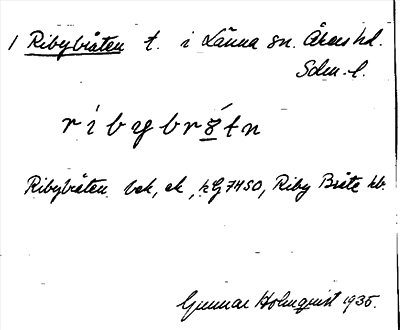 1 Ribybråten t. i Länna sn. Åkers hd.
Sdm. l.
ríbybr t n
Ribybråten bek, ek, kG7450, Riby Bråte hb.
Gunnar Holmquist 1935.